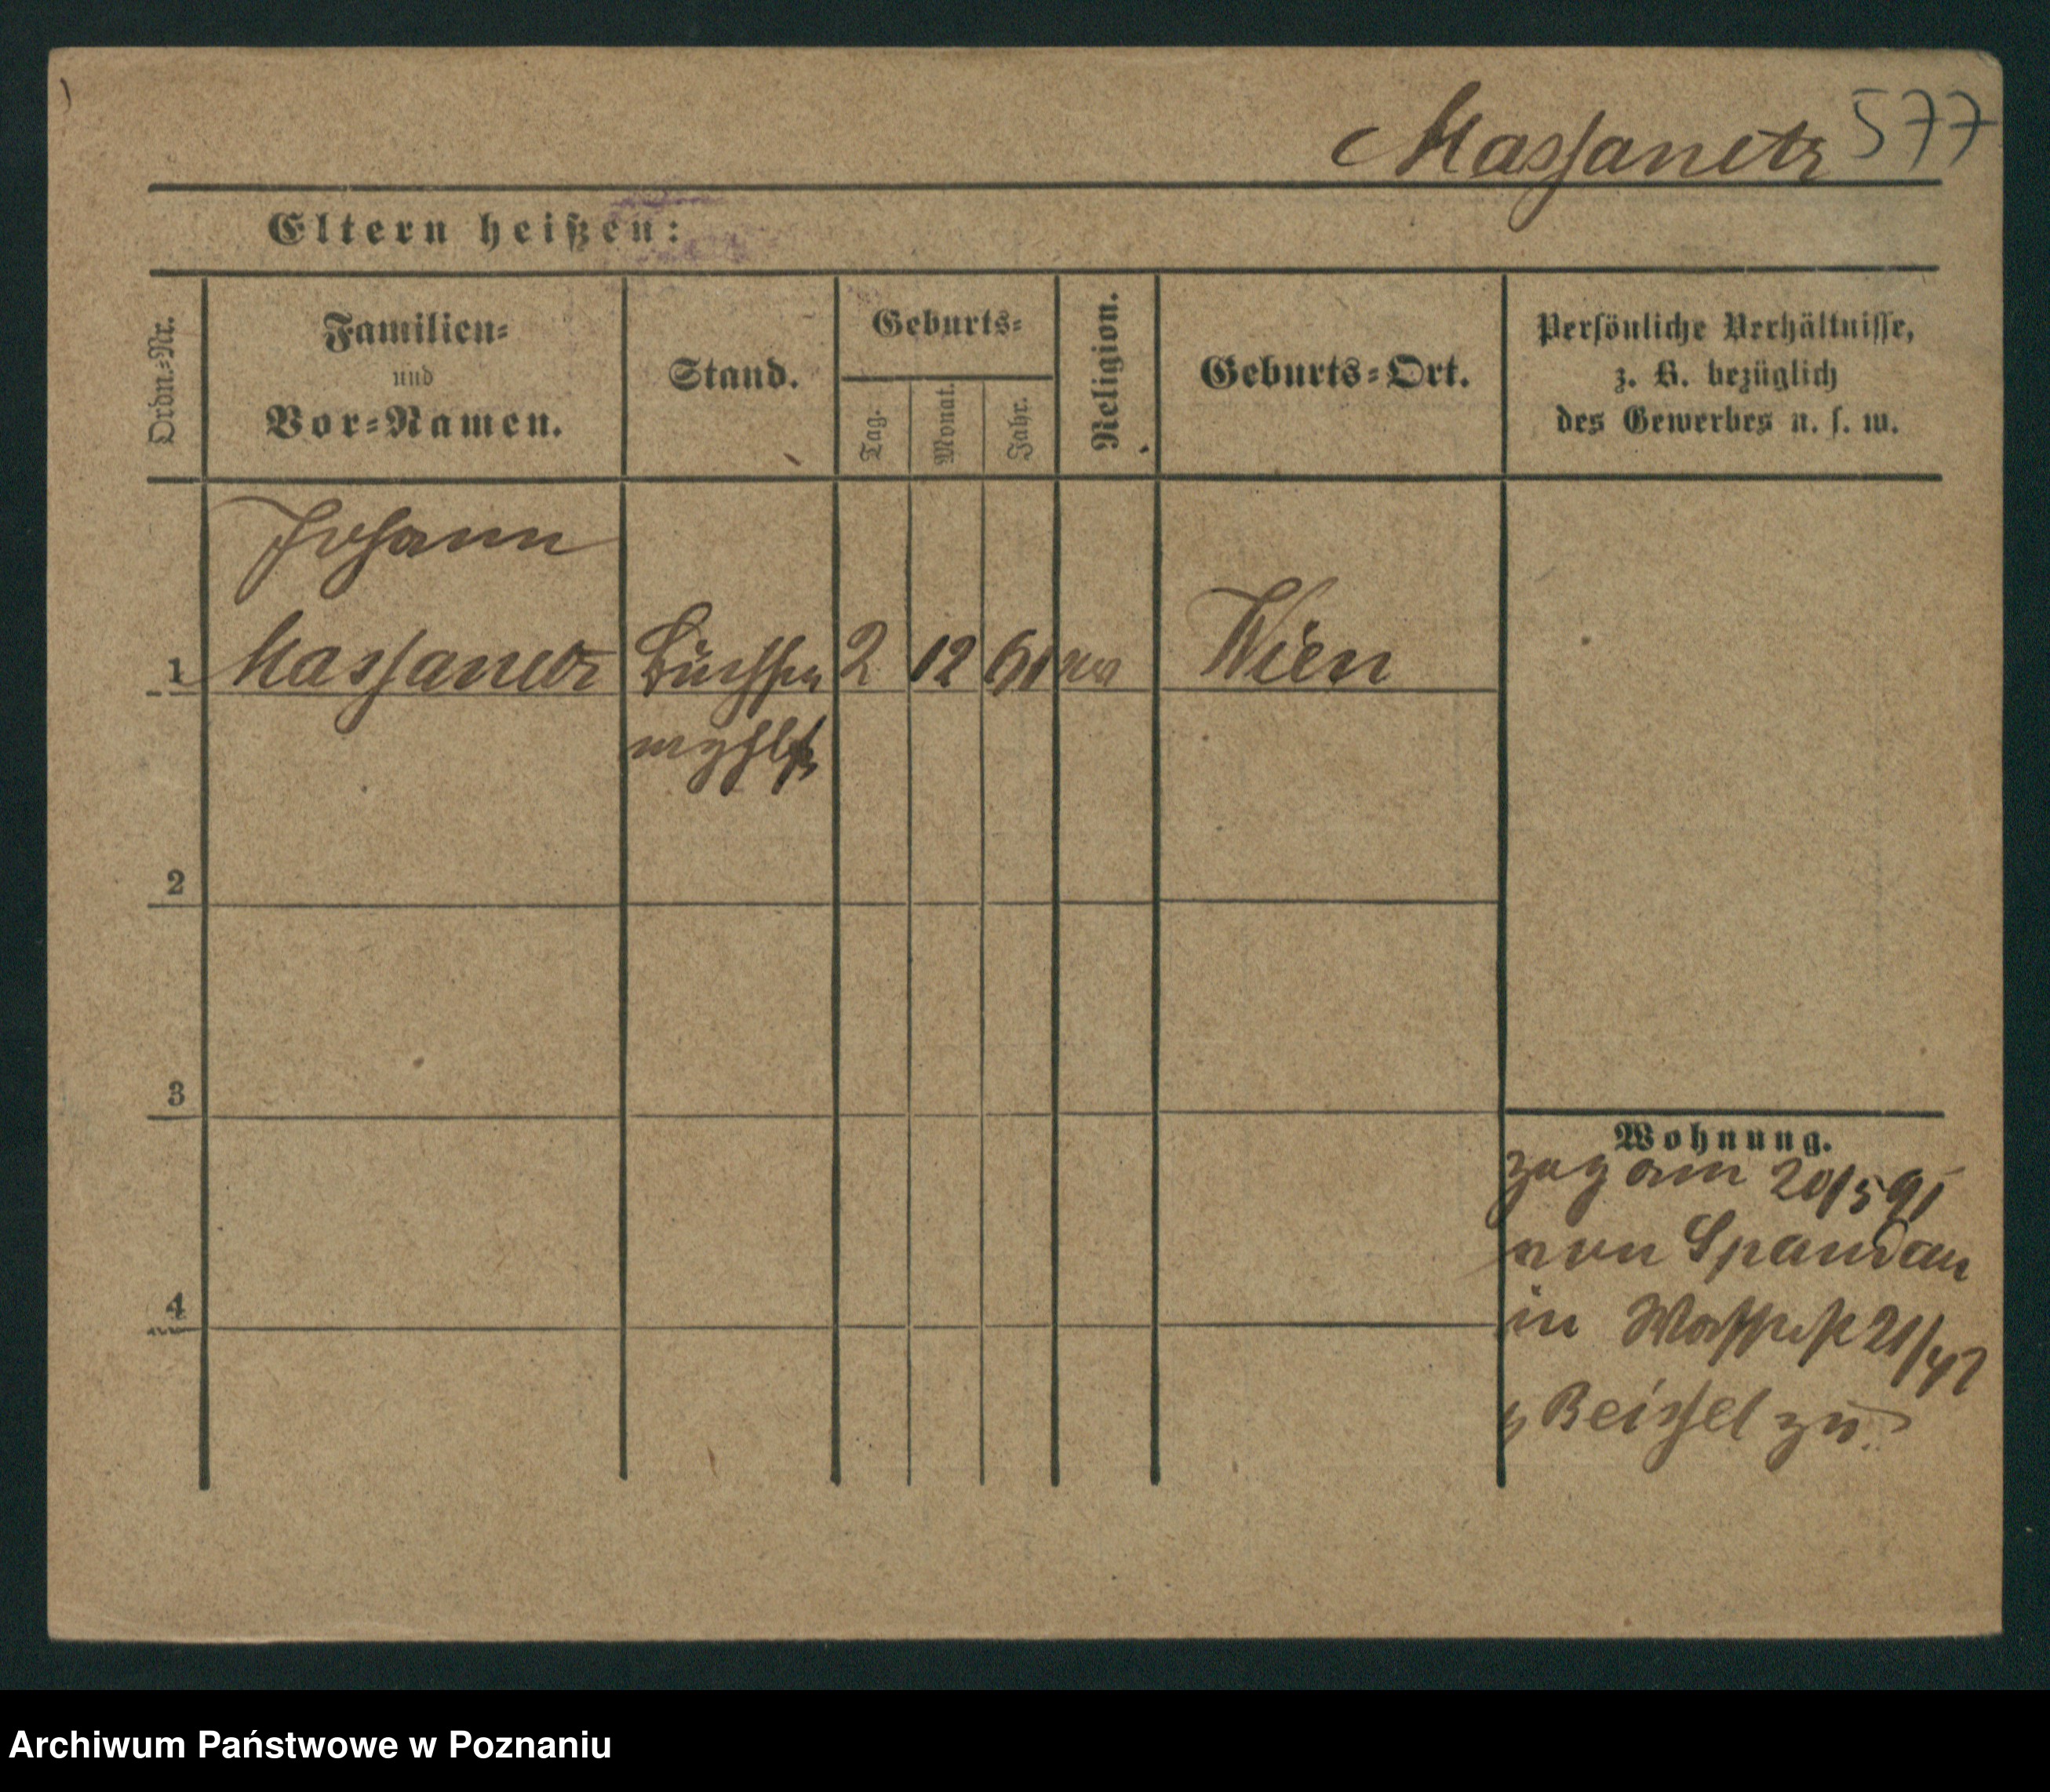 Massanetz 577
Eltern heißen:
Ordn.-Nr.
Familien-
und
Vor-Namen.
Stand.
Geburts-
Tag.
Monat.
Jahr.
Religion.
Geburts-Ort.
Persönliche Verhältnisse,
z. B. bezüglich
des Gewerbes u. s. w.
Johann
1 Massanetz Büchsen 2 12 61 Wien
2
3
4
Wohnung.
zog am 20/5 91
von Spandau
in 21/
Beissel zu.
Archiwum Państwowe w Poznaniu